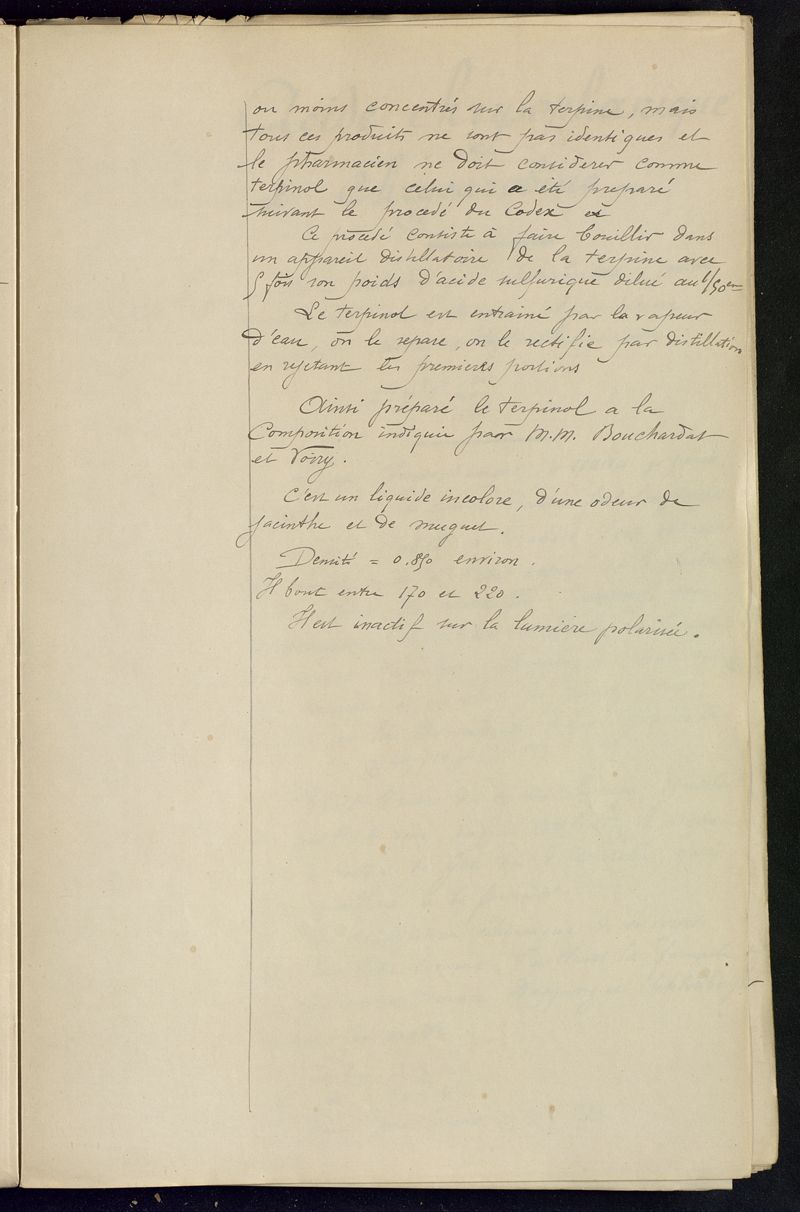 ou moins concentrés sur la terpine, mais
tous ces produits ne sont pas identiques et
le pharmacien ne doit considerer comme
terpinol que celui qui a été preparé
suivant le procedé du Codex
Ce procédé consiste à faire bouillir dans
un appareil distillatoire de la terpine avec
5 fois son poids d'acide sulfurique dilué au 1/50em
Le terpinol est entrainé par la vapeur
d'eau, on le separe, on le rectifie par distillation
en rejetant les premieres portions
Ainsi préparé le terpinol a la
Composition indiquée par M.M. Bouchardat
et Voiry.
C'est un liquide incolore, d'une odeur de
jacinthe et de muguet.
Densité = 0.850 environ.
Il bout entre 170 et 220.
Il est inactif sur la lumière polarisée.